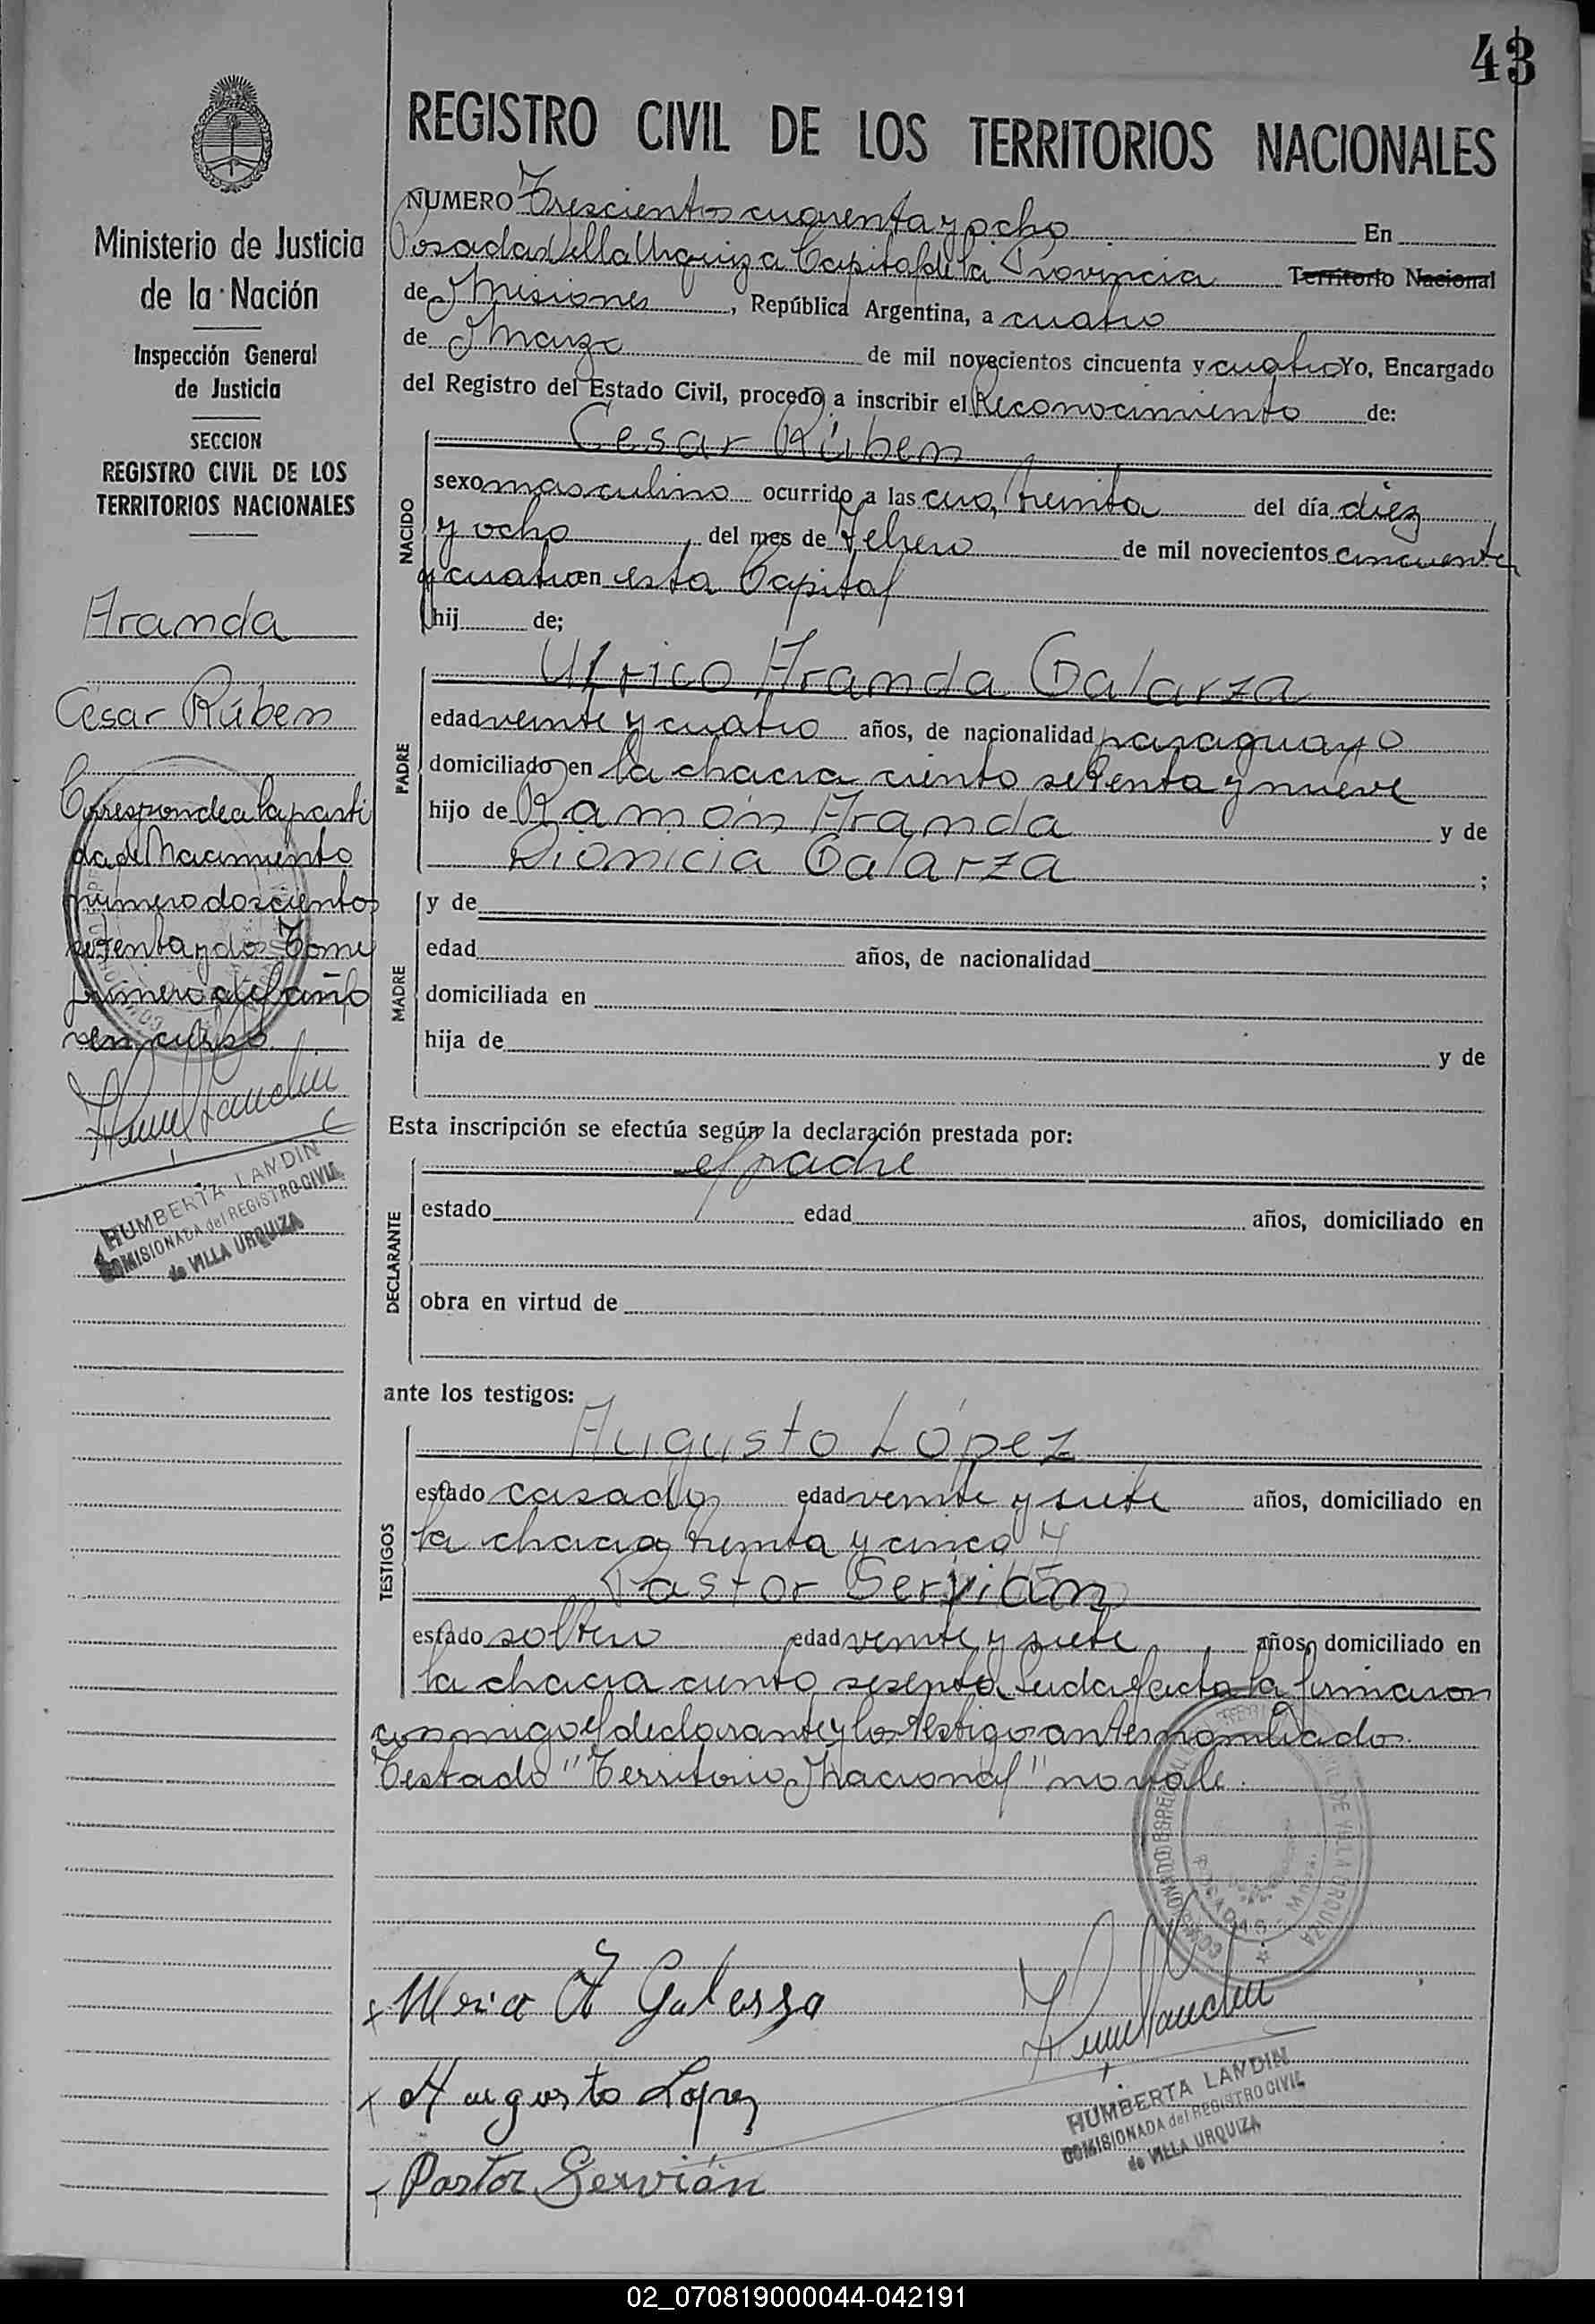 43
REGISTRO CIVIL DE LOS TERRITORIOS NACIONALES
Ministerio de Justicia
de la Nación
Inspección General
de Justicia
SECCION
REGISTRO CIVIL DE LOS
TERRITORIOS NACIONALES
Aranda
César Rúben
Corresponde a la parti
da de Nacimiento
número doscientos
setenta y dos Tomo
primero del año
en curso.
HUMBERTA LANDIN
COMISIONADA del REGISTRO CIVIL
de VILLA URQUIZA
NUMERO Trescientos cuarenta y ocho En
Posadas Villa Urquiza Capital de la Provincia Territorio Nacional
de Misiones, República Argentina, a cuatro
de Marzo de mil novecientos cincuenta y cuatro Yo, Encargado
del Registro del Estado Civil, procedo a inscribir el Reconocimiento de:
NACIDO
Cesar Rúben
sexo masculino ocurrido a las cero, treinta del día diez
y ocho del mes de Febrero de mil novecientos cincuenta
y cuatro en esta Capital
hij de;
PADRE
Ulrico Aranda Galarza
edad veinte y cuatro años, de nacionalidad paraguayo
domiciliado en la chacra ciento setenta y nueve
hijo de Ramón Aranda y de
Dionicia Galarza ;
MADRE
y de
edad años, de nacionalidad
domiciliada en
hija de y de
Esta inscripción se efectúa según la declaración prestada por:
DECLARANTE
el padre
estado edad años, domiciliado en
obra en virtud de
ante los testigos:
TESTIGOS
Augusto López
estado casado edad veinte y siete años, domiciliado en
la chacra treinta y cinco y
Pastor Servián
estado soltero edad veinte y siete años, domiciliado en
la chacra ciento sesenta. Leida el acta la firmaron
conmigo el declarante y los testigos antes nombrados.
Testado "Territorio Nacional" no vale.
Augusto Lopez
Pastor Servián
HUMBERTA LANDIN
COMISIONADA del REGISTRO CIVIL
de VILLA URQUIZA
02_070819000044-042191